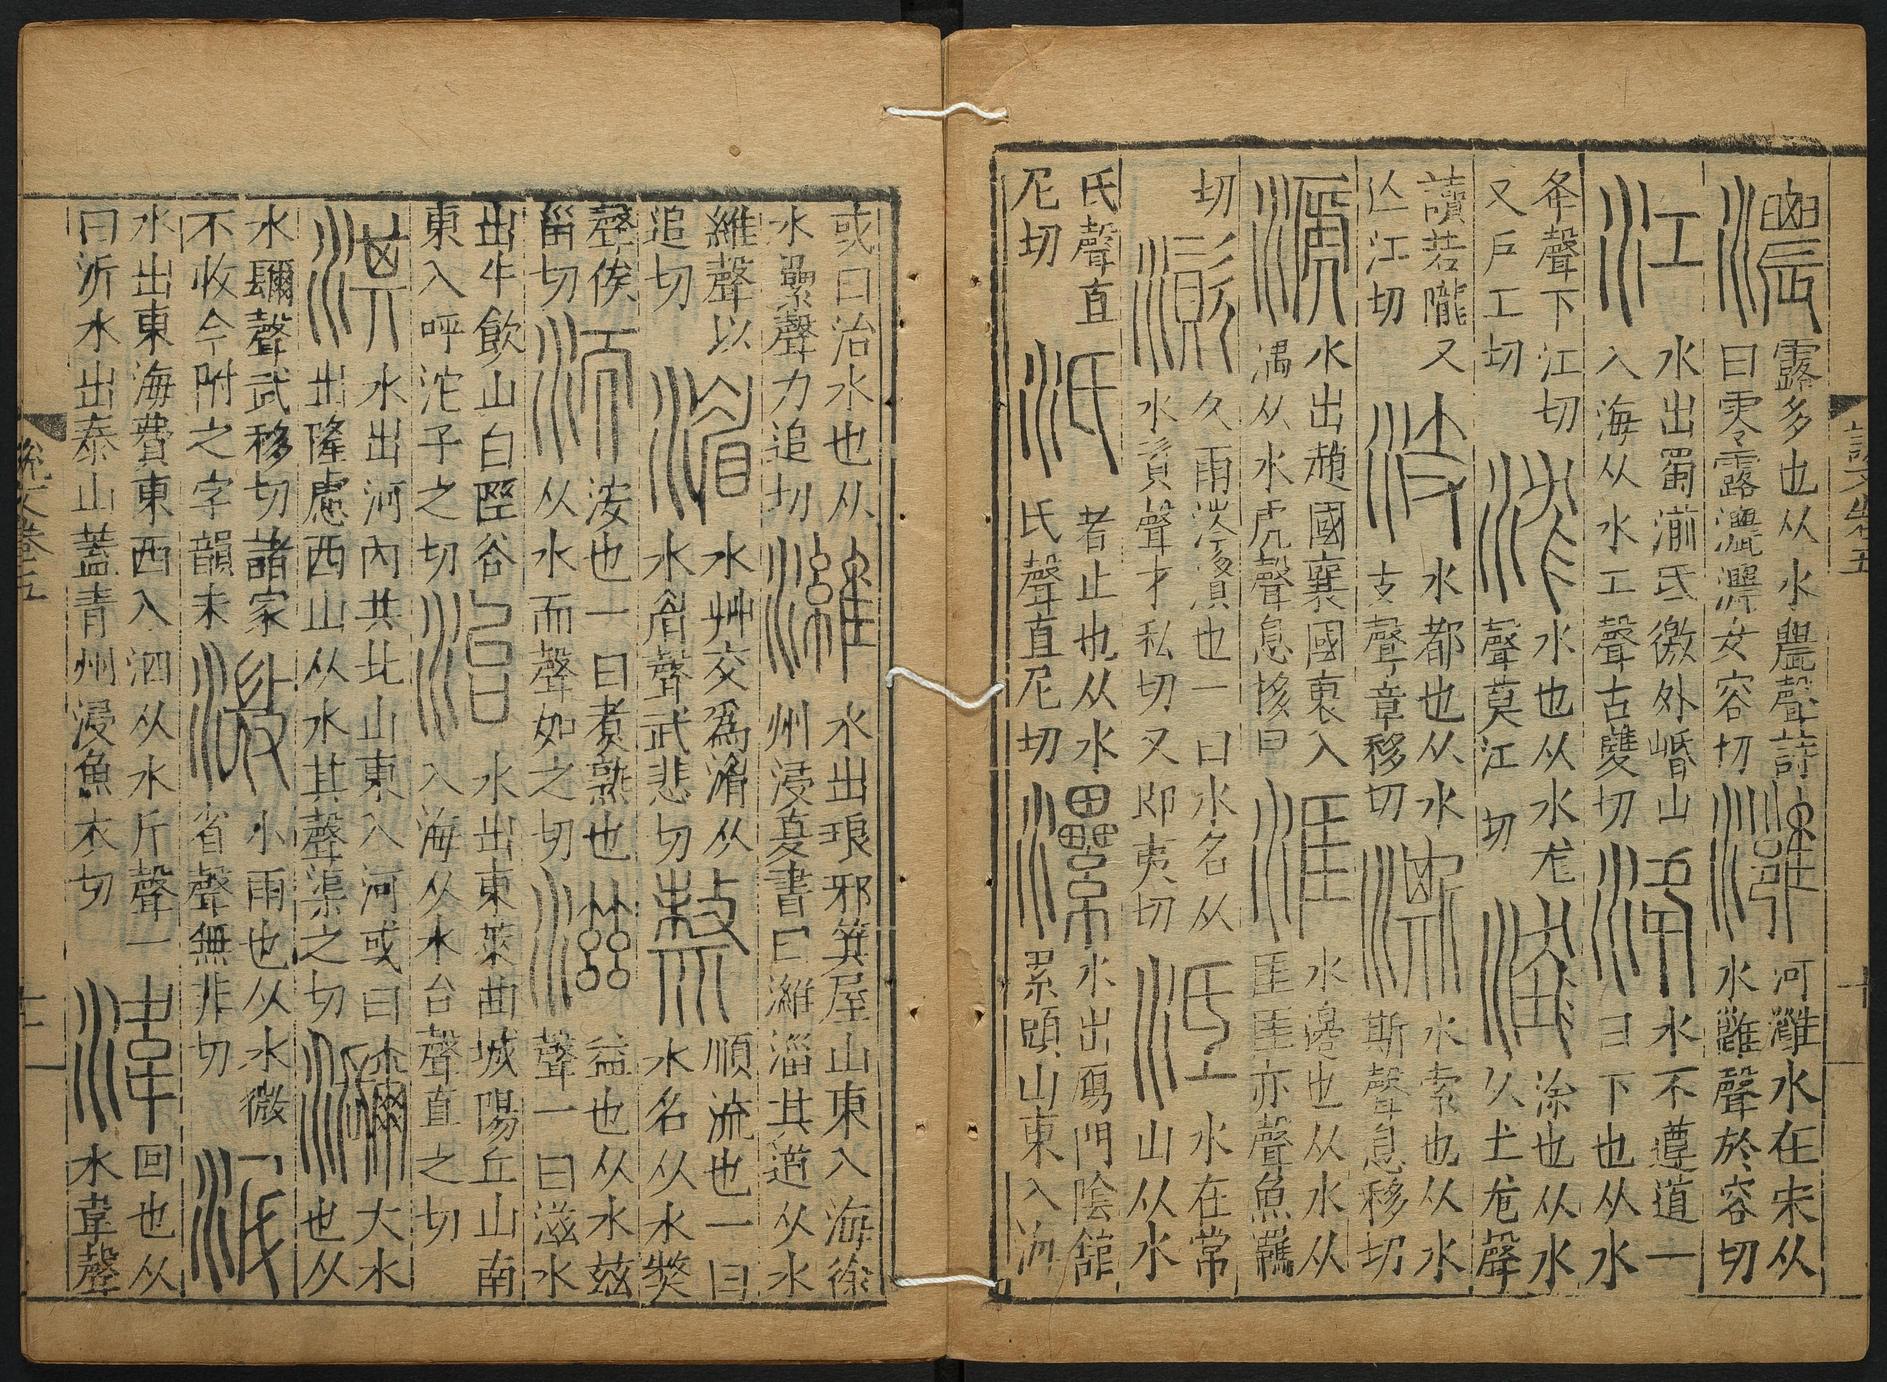 說文卷五 十
濃 露多也从水農聲詩曰零露濃濃女容切 灉 河灉水在宋从水雝聲於容切
江 水出蜀湔氐徼外崏山入海从水工聲古雙切 洚 水不遵道一曰下也从水
夅聲下江切又戶工切 浝 水也从水尨聲莫江切 𣹟 涂也从水从土尨聲
讀若隴又亾江切 汥 水都也从水支聲章移切 澌 水索也从水斯聲息移切
㴲 水出趙國襄國東入湡从水虒聲息移切 涯 水邊也从水从厓厓亦聲魚羈
切 澬 久雨涔澬也一曰水名从水資聲才私切又即夷切 泜 水在常山从水
氐聲直尼切 汦 著止也从水氏聲直尼切 灅 水出鴈門陰館累頭山東入海
或曰治水也从水纍聲力追切 濰 水出琅邪箕屋山東入海徐州浸夏書曰濰淄其道从水
維聲以追切 湄 水艸交爲湄从水眉聲武悲切 漦 順流也一曰水名从水㹈
聲俟甾切 洏 洝也一曰煑熟也从水而聲如之切 滋 益也从水兹聲一曰滋水
出牛飲山白陘谷東入呼沱子之切 治 水出東萊曲城陽丘山南入海从水台聲直之切
淇 水出河內共北山東入河或曰出隆慮西山从水其聲渠之切 濔 大水也从
水镾聲武移切諸家不收今附之字韻末 溦 小雨也从水微省聲無非切 沂
水出東海費東西入泗从水斤聲一曰沂水出泰山蓋青州浸魚衣切 湋 回也从水韋聲
說文卷五 十一